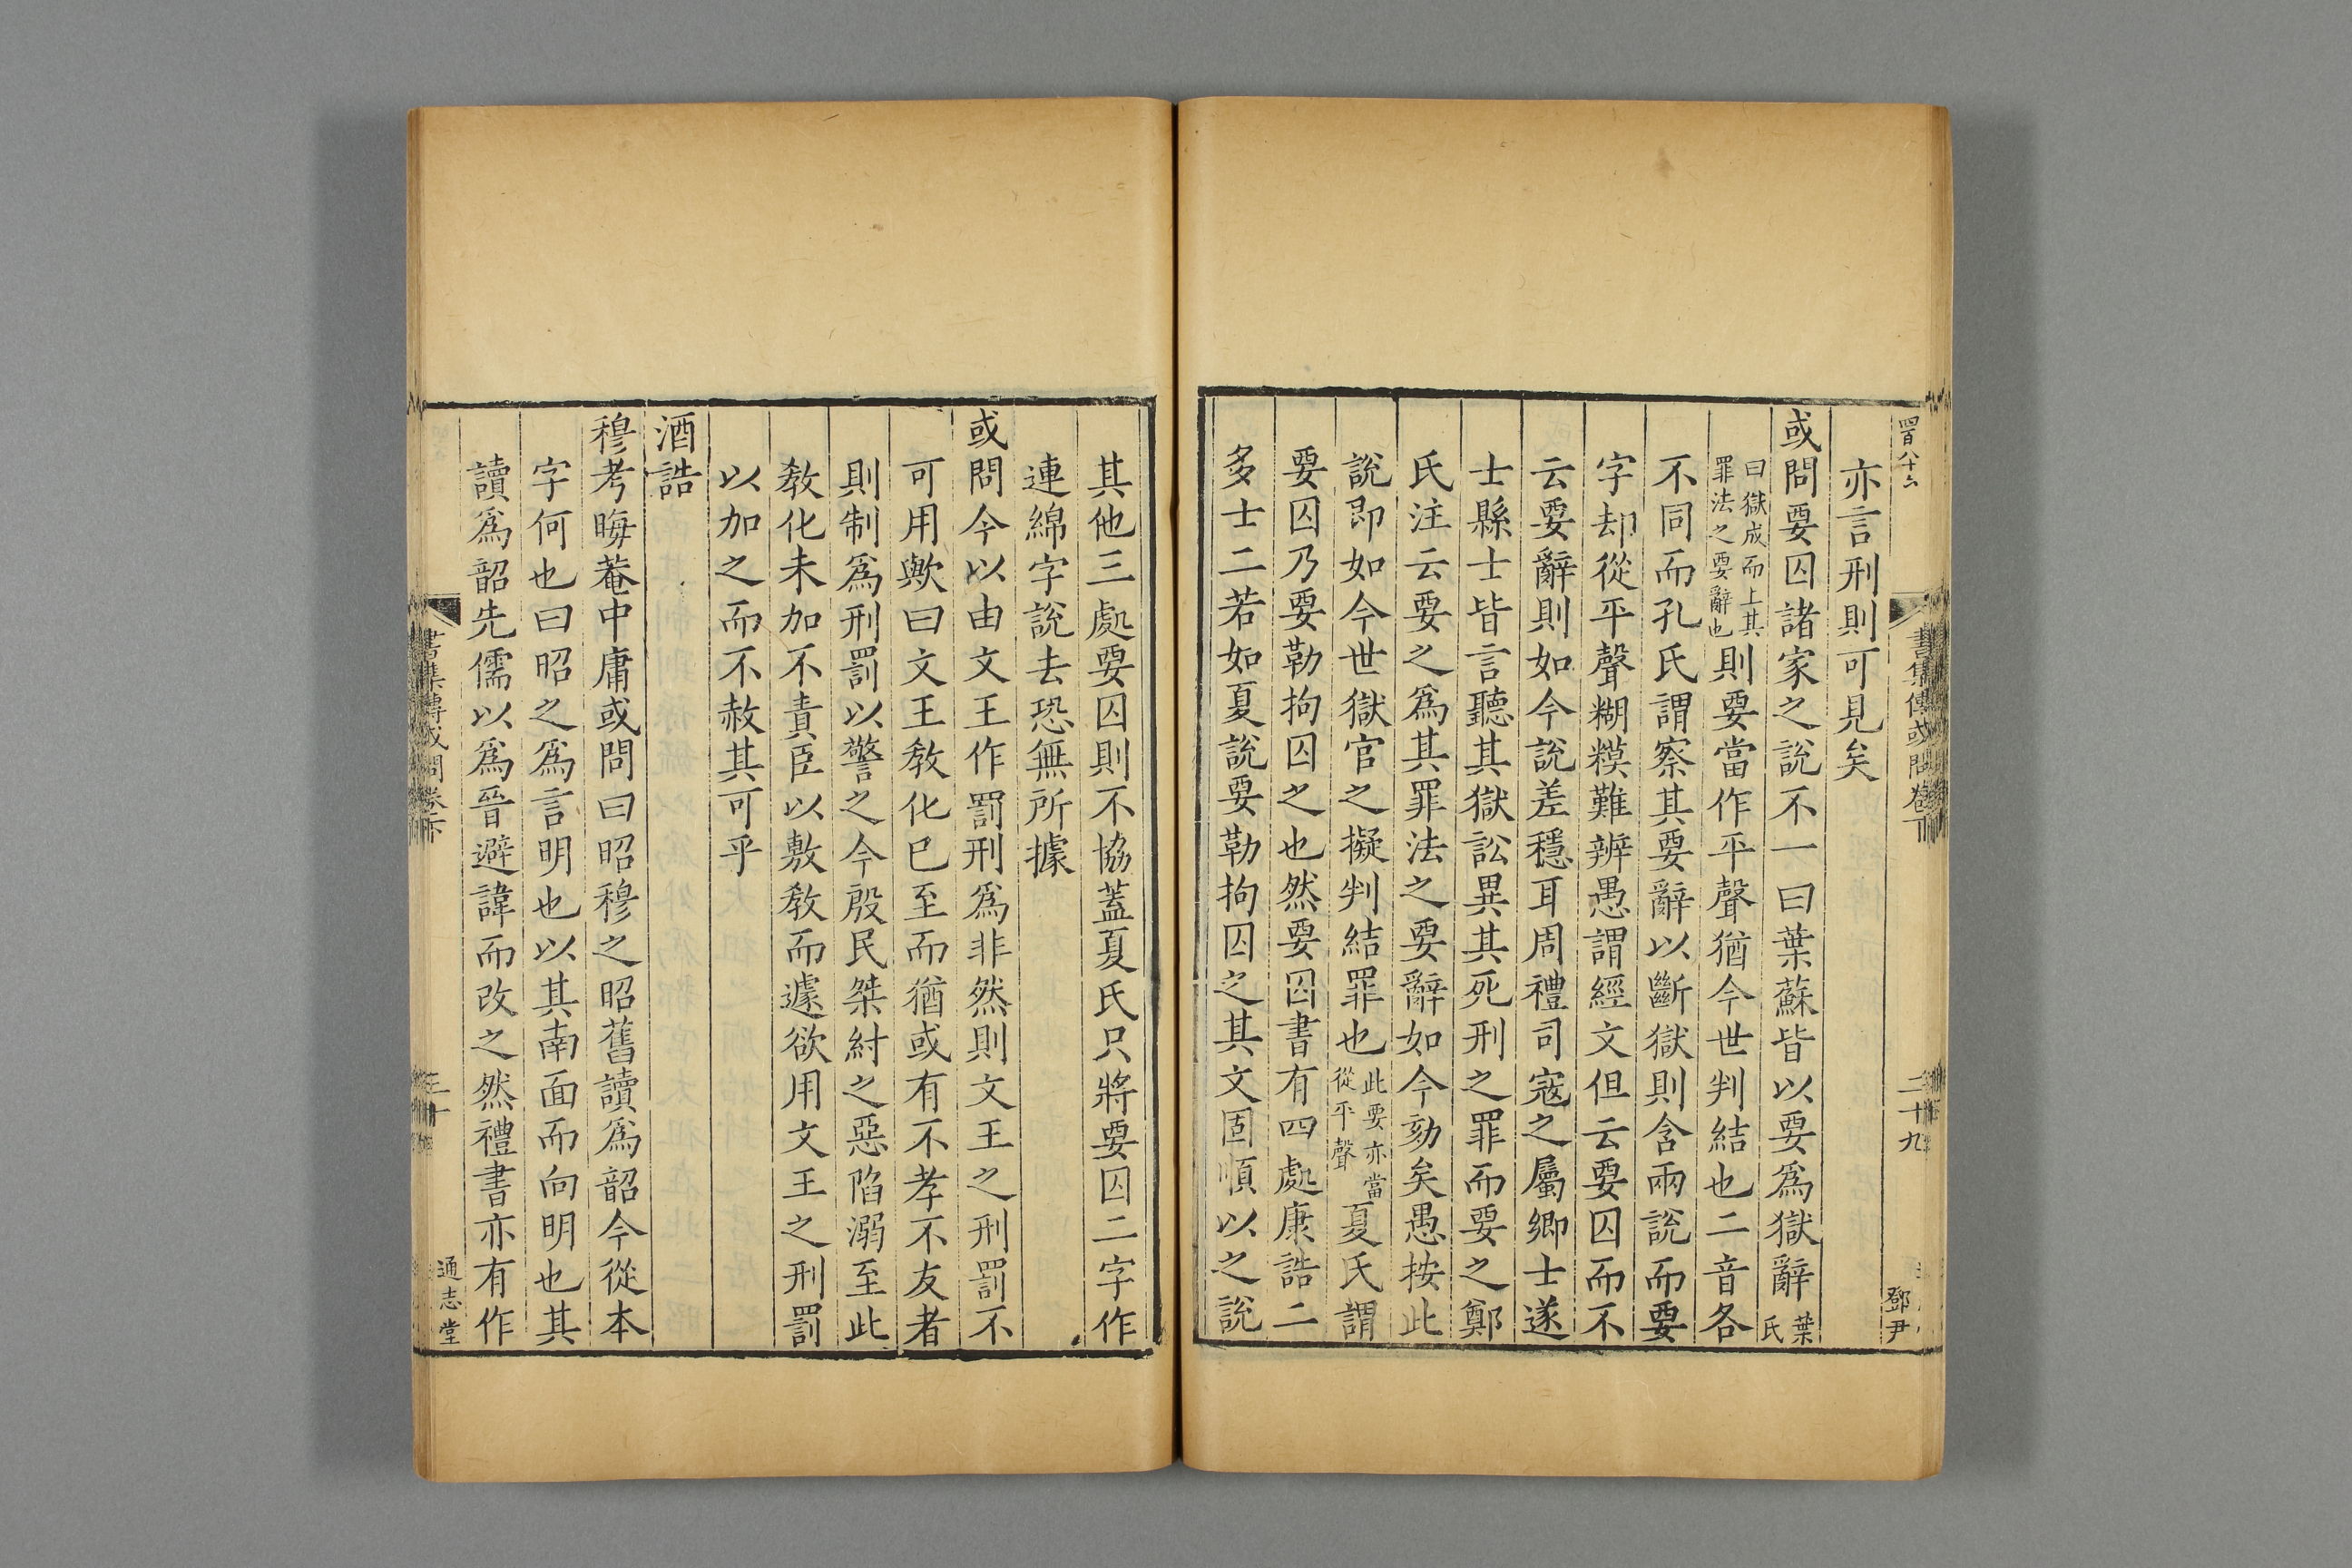 四百八十六
書集傳或問卷下
二十九
鄧尹
亦言刑則可見矣
或問要囚諸家之說不一曰葉蘇皆以要爲獄辭葉氏
曰獄成而上其罪法之要辭也則要當作平聲猶今世判結也二音各
不同而孔氏謂察其要辭以斷獄則含兩說而要
字却從平聲糊糢難辨愚謂經文但云要囚而不
云要辭則如今說差穩耳周禮司寇之屬鄉士遂
士縣士皆言聽其獄訟異其死刑之罪而要之鄭
氏注云要之爲其罪法之要辭如今劾矣愚按此
說即如今世獄官之擬判結罪也此要亦當從平聲夏氏謂
要囚乃要勒拘囚之也然要囚書有四處康誥二
多士二若如夏說要勒拘囚之其文固順以之說
其他三處要囚則不協蓋夏氏只將要囚二字作
連綿字說去恐無所據
或問今以由文王作罰刑爲非然則文王之刑罰不
可用歟曰文王敎化已至而猶或有不孝不友者
則制爲刑罰以警之今殷民桀紂之惡陷溺至此
敎化未加不責臣以敷敎而遽欲用文王之刑罰
以加之而不赦其可乎
酒誥
穆考晦菴中庸或問曰昭穆之昭舊讀爲韶今從本
字何也曰昭之爲言明也以其南面而向明也其
讀爲韶先儒以爲晉避諱而改之然禮書亦有作
書集傳或問卷下
三十
通志堂